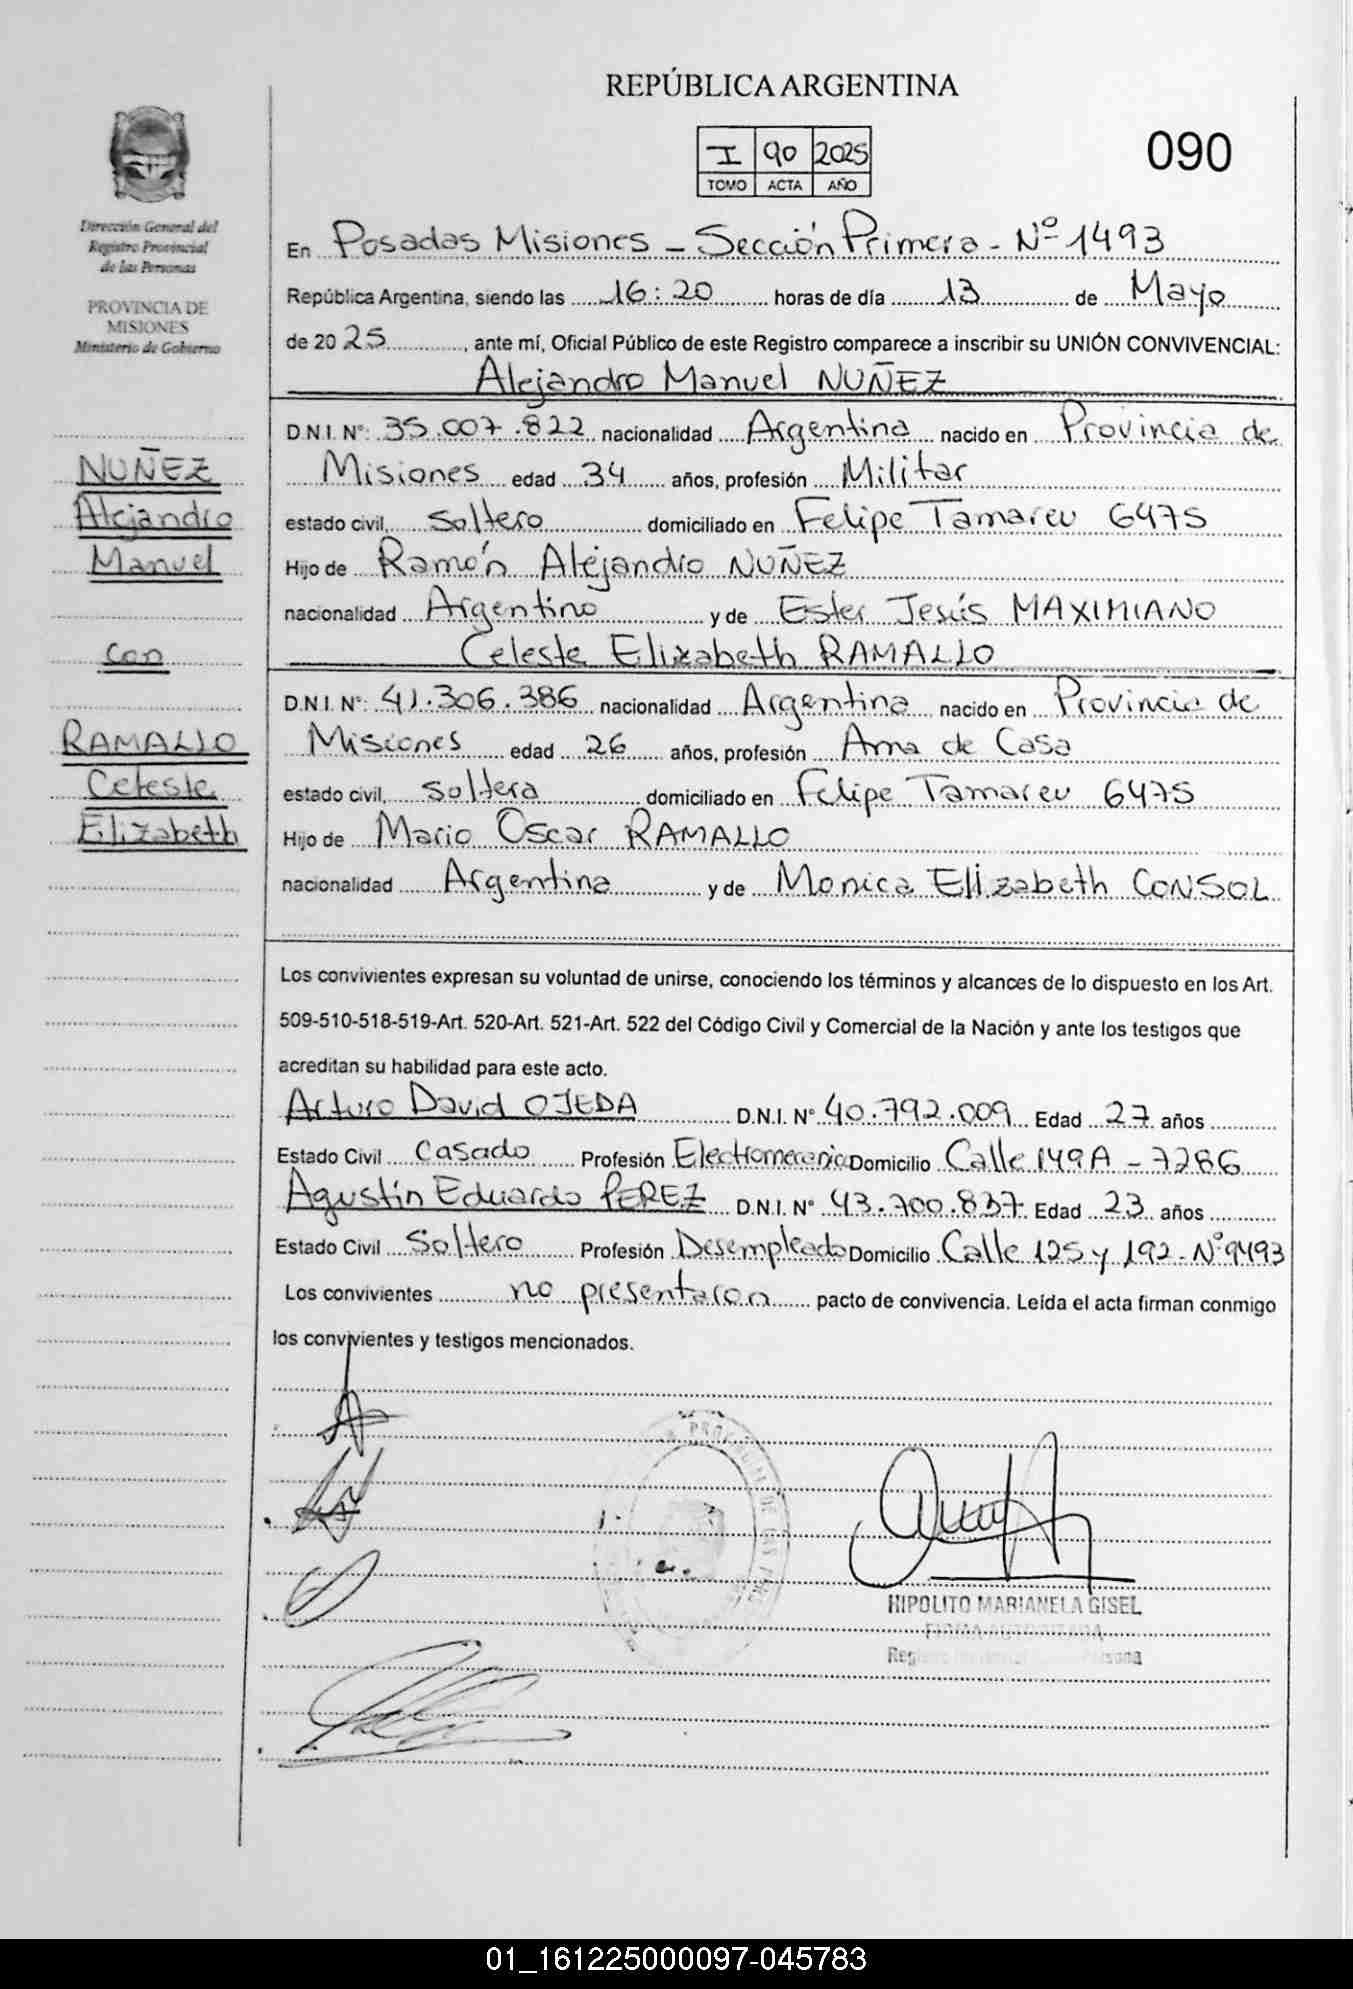 REPÚBLICA ARGENTINA
I 90 2025
TOMO ACTA AÑO
090
Dirección General del
Registro Provincial
de las Personas
PROVINCIA DE
MISIONES
Ministerio de Gobierno
En Posadas Misiones - Sección Primera - Nº 1493
República Argentina, siendo las 16:20 horas de día 13 de Mayo
de 2025, ante mí, Oficial Público de este Registro comparece a inscribir su UNIÓN CONVIVENCIAL:
Alejandro Manuel NUÑEZ
D.N.I. Nº: 35.007.822 nacionalidad Argentina nacido en Provincia de
Misiones edad 34 años, profesión Militar
estado civil, Soltero domiciliado en Felipe Tamareu 6475
Hijo de Ramón Alejandro NUÑEZ
nacionalidad Argentino y de Ester Jesús MAXIMIANO
Celeste Elizabeth RAMALLO
D.N.I. Nº: 41.306.386 nacionalidad Argentina nacido en Provincia de
Misiones edad 26 años, profesión Ama de Casa
estado civil, Soltera domiciliado en Felipe Tamareu 6475
Hijo de Mario Oscar RAMALLO
nacionalidad Argentina y de Monica Elizabeth CONSOL
NUÑEZ
Alejandro
Manuel
Con
RAMALLO
Celeste
Elizabeth
Los convivientes expresan su voluntad de unirse, conociendo los términos y alcances de lo dispuesto en los Art.
509-510-518-519-Art. 520-Art. 521-Art. 522 del Código Civil y Comercial de la Nación y ante los testigos que
acreditan su habilidad para este acto.
Arturo David OJEDA D.N.I. Nº 40.792.009 Edad 27 años
Estado Civil Casado Profesión Domicilio Calle 149A - 7286
Agustín Eduardo PEREZ D.N.I. Nº 43.700.837 Edad 23 años
Estado Civil Soltero Profesión Desempleado Domicilio Calle 125 y 192 - Nº 9493
Los convivientes no presentaron pacto de convivencia. Leída el acta firman conmigo
los convivientes y testigos mencionados.
HIPOLITO MARIANELA GISEL
FIRMA AUTORIZADA
01_161225000097-045783